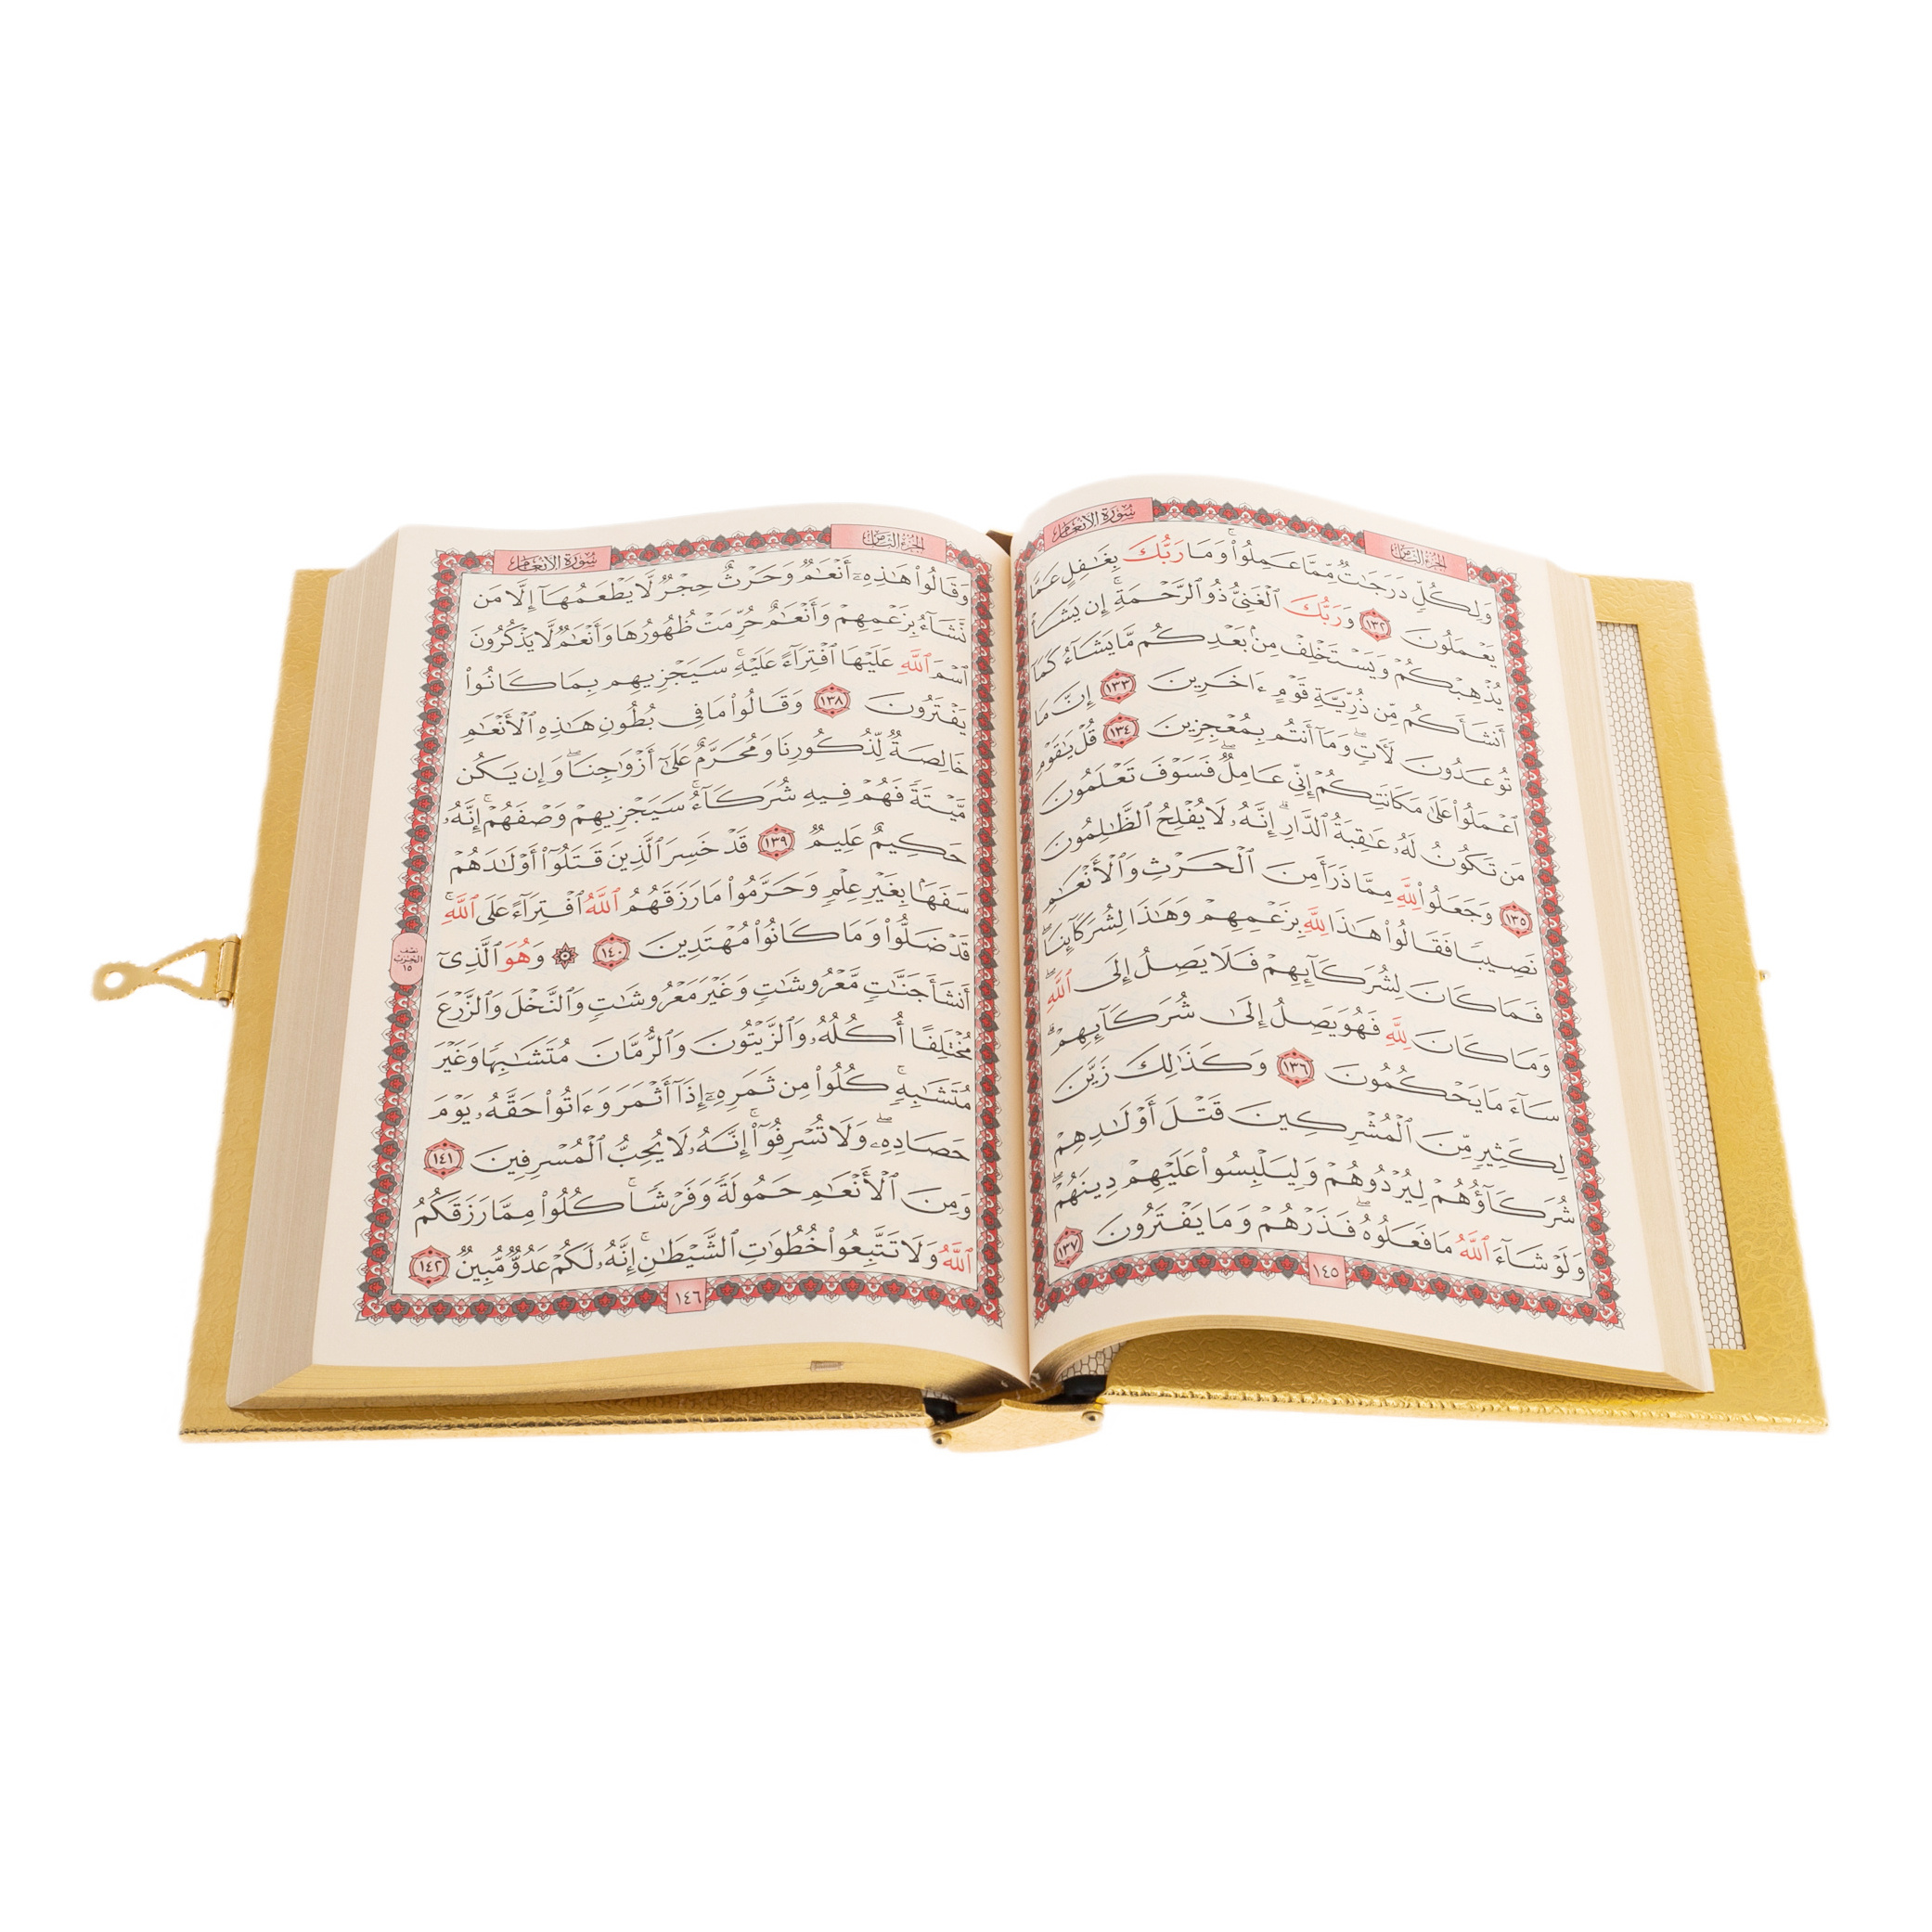 سُورَةُ الأَنْعَامِ
الجُزْءُ الثَّامِنُ
وَلِكُلٍّ دَرَجَٰتٌ مِّمَّا عَمِلُوا۟ ۚ وَمَا رَبُّكَ بِغَٰفِلٍ عَمَّا
يَعْمَلُونَ ١٣٢ وَرَبُّكَ ٱلْغَنِىُّ ذُو ٱلرَّحْمَةِ ۚ إِن يَشَأْ
يُذْهِبْكُمْ وَيَسْتَخْلِفْ مِنۢ بَعْدِكُم مَّا يَشَآءُ كَمَآ
أَنشَأَكُم مِّن ذُرِّيَّةِ قَوْمٍ ءَاخَرِينَ ١٣٣ إِنَّ مَا
تُوعَدُونَ لَءَاتٍ ۖ وَمَآ أَنتُم بِمُعْجِزِينَ ١٣٤ قُلْ يَٰقَوْمِ
ٱعْمَلُوا۟ عَلَىٰ مَكَانَتِكُمْ إِنِّى عَامِلٌ ۖ فَسَوْفَ تَعْلَمُونَ
مَن تَكُونُ لَهُۥ عَٰقِبَةُ ٱلدَّارِ ۗ إِنَّهُۥ لَا يُفْلِحُ ٱلظَّٰلِمُونَ
١٣٥ وَجَعَلُوا۟ لِلَّهِ مِمَّا ذَرَأَ مِنَ ٱلْحَرْثِ وَٱلْأَنْعَٰمِ
نَصِيبًا فَقَالُوا۟ هَٰذَا لِلَّهِ بِزَعْمِهِمْ وَهَٰذَا لِشُرَكَآئِنَا ۖ
فَمَا كَانَ لِشُرَكَآئِهِمْ فَلَا يَصِلُ إِلَى ٱللَّهِ ۖ
وَمَا كَانَ لِلَّهِ فَهُوَ يَصِلُ إِلَىٰ شُرَكَآئِهِمْ ۗ
سَآءَ مَا يَحْكُمُونَ ١٣٦ وَكَذَٰلِكَ زَيَّنَ
لِكَثِيرٍ مِّنَ ٱلْمُشْرِكِينَ قَتْلَ أَوْلَٰدِهِمْ
شُرَكَآؤُهُمْ لِيُرْدُوهُمْ وَلِيَلْبِسُوا۟ عَلَيْهِمْ دِينَهُمْ ۖ
وَلَوْ شَآءَ ٱللَّهُ مَا فَعَلُوهُ ۖ فَذَرْهُمْ وَمَا يَفْتَرُونَ ١٣٧
١٤٥
الجُزْءُ الثَّامِنُ
سُورَةُ الأَنْعَامِ
وَقَالُوا۟ هَٰذِهِۦٓ أَنْعَٰمٌ وَحَرْثٌ حِجْرٌ لَّا يَطْعَمُهَآ إِلَّا مَن
نَّشَآءُ بِزَعْمِهِمْ وَأَنْعَٰمٌ حُرِّمَتْ ظُهُورُهَا وَأَنْعَٰمٌ لَّا يَذْكُرُونَ
ٱسْمَ ٱللَّهِ عَلَيْهَا ٱفْتِرَآءً عَلَيْهِ ۚ سَيَجْزِيهِم بِمَا كَانُوا۟
يَفْتَرُونَ ١٣٨ وَقَالُوا۟ مَا فِى بُطُونِ هَٰذِهِ ٱلْأَنْعَٰمِ
خَالِصَةٌ لِّذُكُورِنَا وَمُحَرَّمٌ عَلَىٰٓ أَزْوَٰجِنَا ۖ وَإِن يَكُن
مَّيْتَةً فَهُمْ فِيهِ شُرَكَآءُ ۚ سَيَجْزِيهِمْ وَصْفَهُمْ ۚ إِنَّهُۥ
حَكِيمٌ عَلِيمٌ ١٣٩ قَدْ خَسِرَ ٱلَّذِينَ قَتَلُوٓا۟ أَوْلَٰدَهُمْ
سَفَهًۢا بِغَيْرِ عِلْمٍ وَحَرَّمُوا۟ مَا رَزَقَهُمُ ٱللَّهُ ٱفْتِرَآءً عَلَى ٱللَّهِ ۚ
قَدْ ضَلُّوا۟ وَمَا كَانُوا۟ مُهْتَدِينَ ١٤٠ ۞ وَهُوَ ٱلَّذِىٓ
نصف الحزب ١٥
أَنشَأَ جَنَّٰتٍ مَّعْرُوشَٰتٍ وَغَيْرَ مَعْرُوشَٰتٍ وَٱلنَّخْلَ وَٱلزَّرْعَ
مُخْتَلِفًا أُكُلُهُۥ وَٱلزَّيْتُونَ وَٱلرُّمَّانَ مُتَشَٰبِهًا وَغَيْرَ
مُتَشَٰبِهٍ ۚ كُلُوا۟ مِن ثَمَرِهِۦٓ إِذَآ أَثْمَرَ وَءَاتُوا۟ حَقَّهُۥ يَوْمَ
حَصَادِهِۦ ۖ وَلَا تُسْرِفُوٓا۟ ۚ إِنَّهُۥ لَا يُحِبُّ ٱلْمُسْرِفِينَ ١٤١
وَمِنَ ٱلْأَنْعَٰمِ حَمُولَةً وَفَرْشًا ۚ كُلُوا۟ مِمَّا رَزَقَكُمُ
ٱللَّهُ وَلَا تَتَّبِعُوا۟ خُطُوَٰتِ ٱلشَّيْطَٰنِ ۚ إِنَّهُۥ لَكُمْ عَدُوٌّ مُّبِينٌ ١٤٢
١٤٦